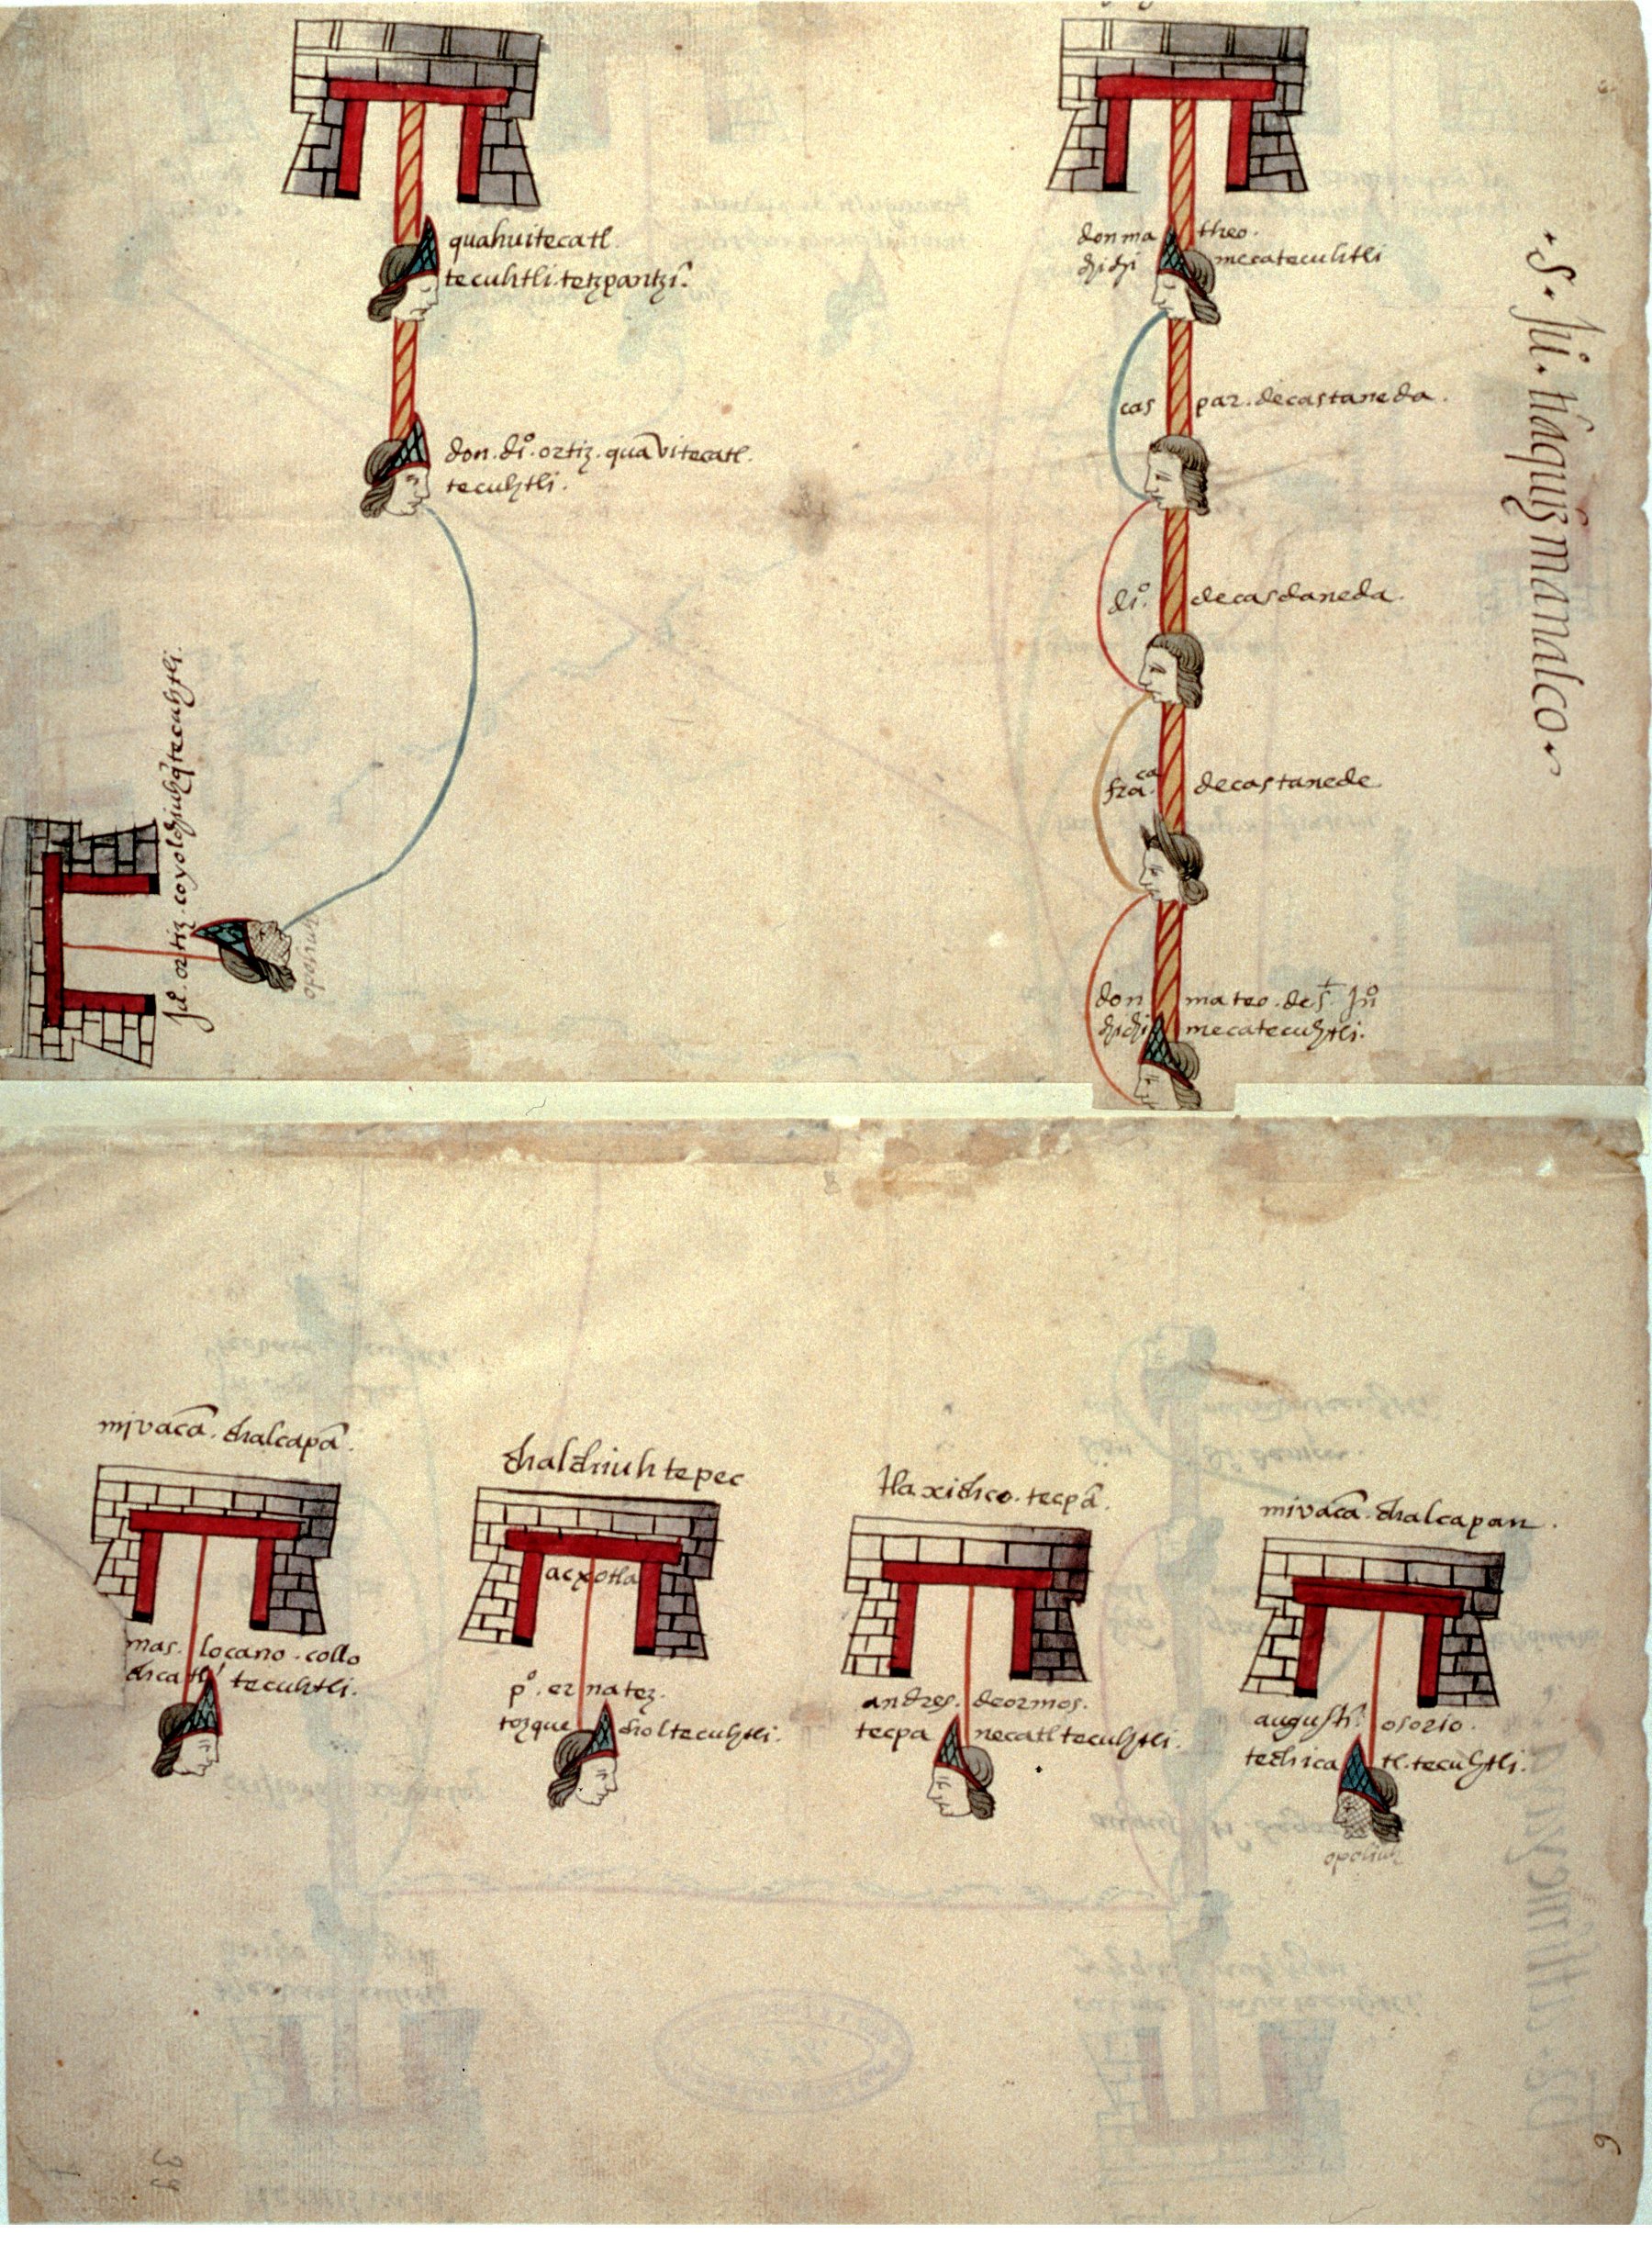 quahuitecatl
tecuhtli.tetzpantzī.
don.di°.ortiz.quāvitecatl.
tecuhtli.
ju°.ortiz.coyolchiuhq̄tecuhtli.
opoliuh
don ma theo.
chichi mecatecuhtli
cas par.decastaneda.
di°. decasdaneda.
frāca. decastanede
don mateo.des.t Ju°
chichi mecatecuhtli.
.S.Jui.tlaquizmanalco.
mivacā.chalcapā.
mas. locano.collo
chicatl tecuhtli.
chalchiuhtepec
acxotla
p°.ernatez.
tozque choltecuhtli.
tlaxichco.tecpā.
andres. deormos.
tecpa necatltecuhtli.
mivacā.chalcapan.
augustī. osorio.
techica tl.tecuhtli.
opoliuh
39
6